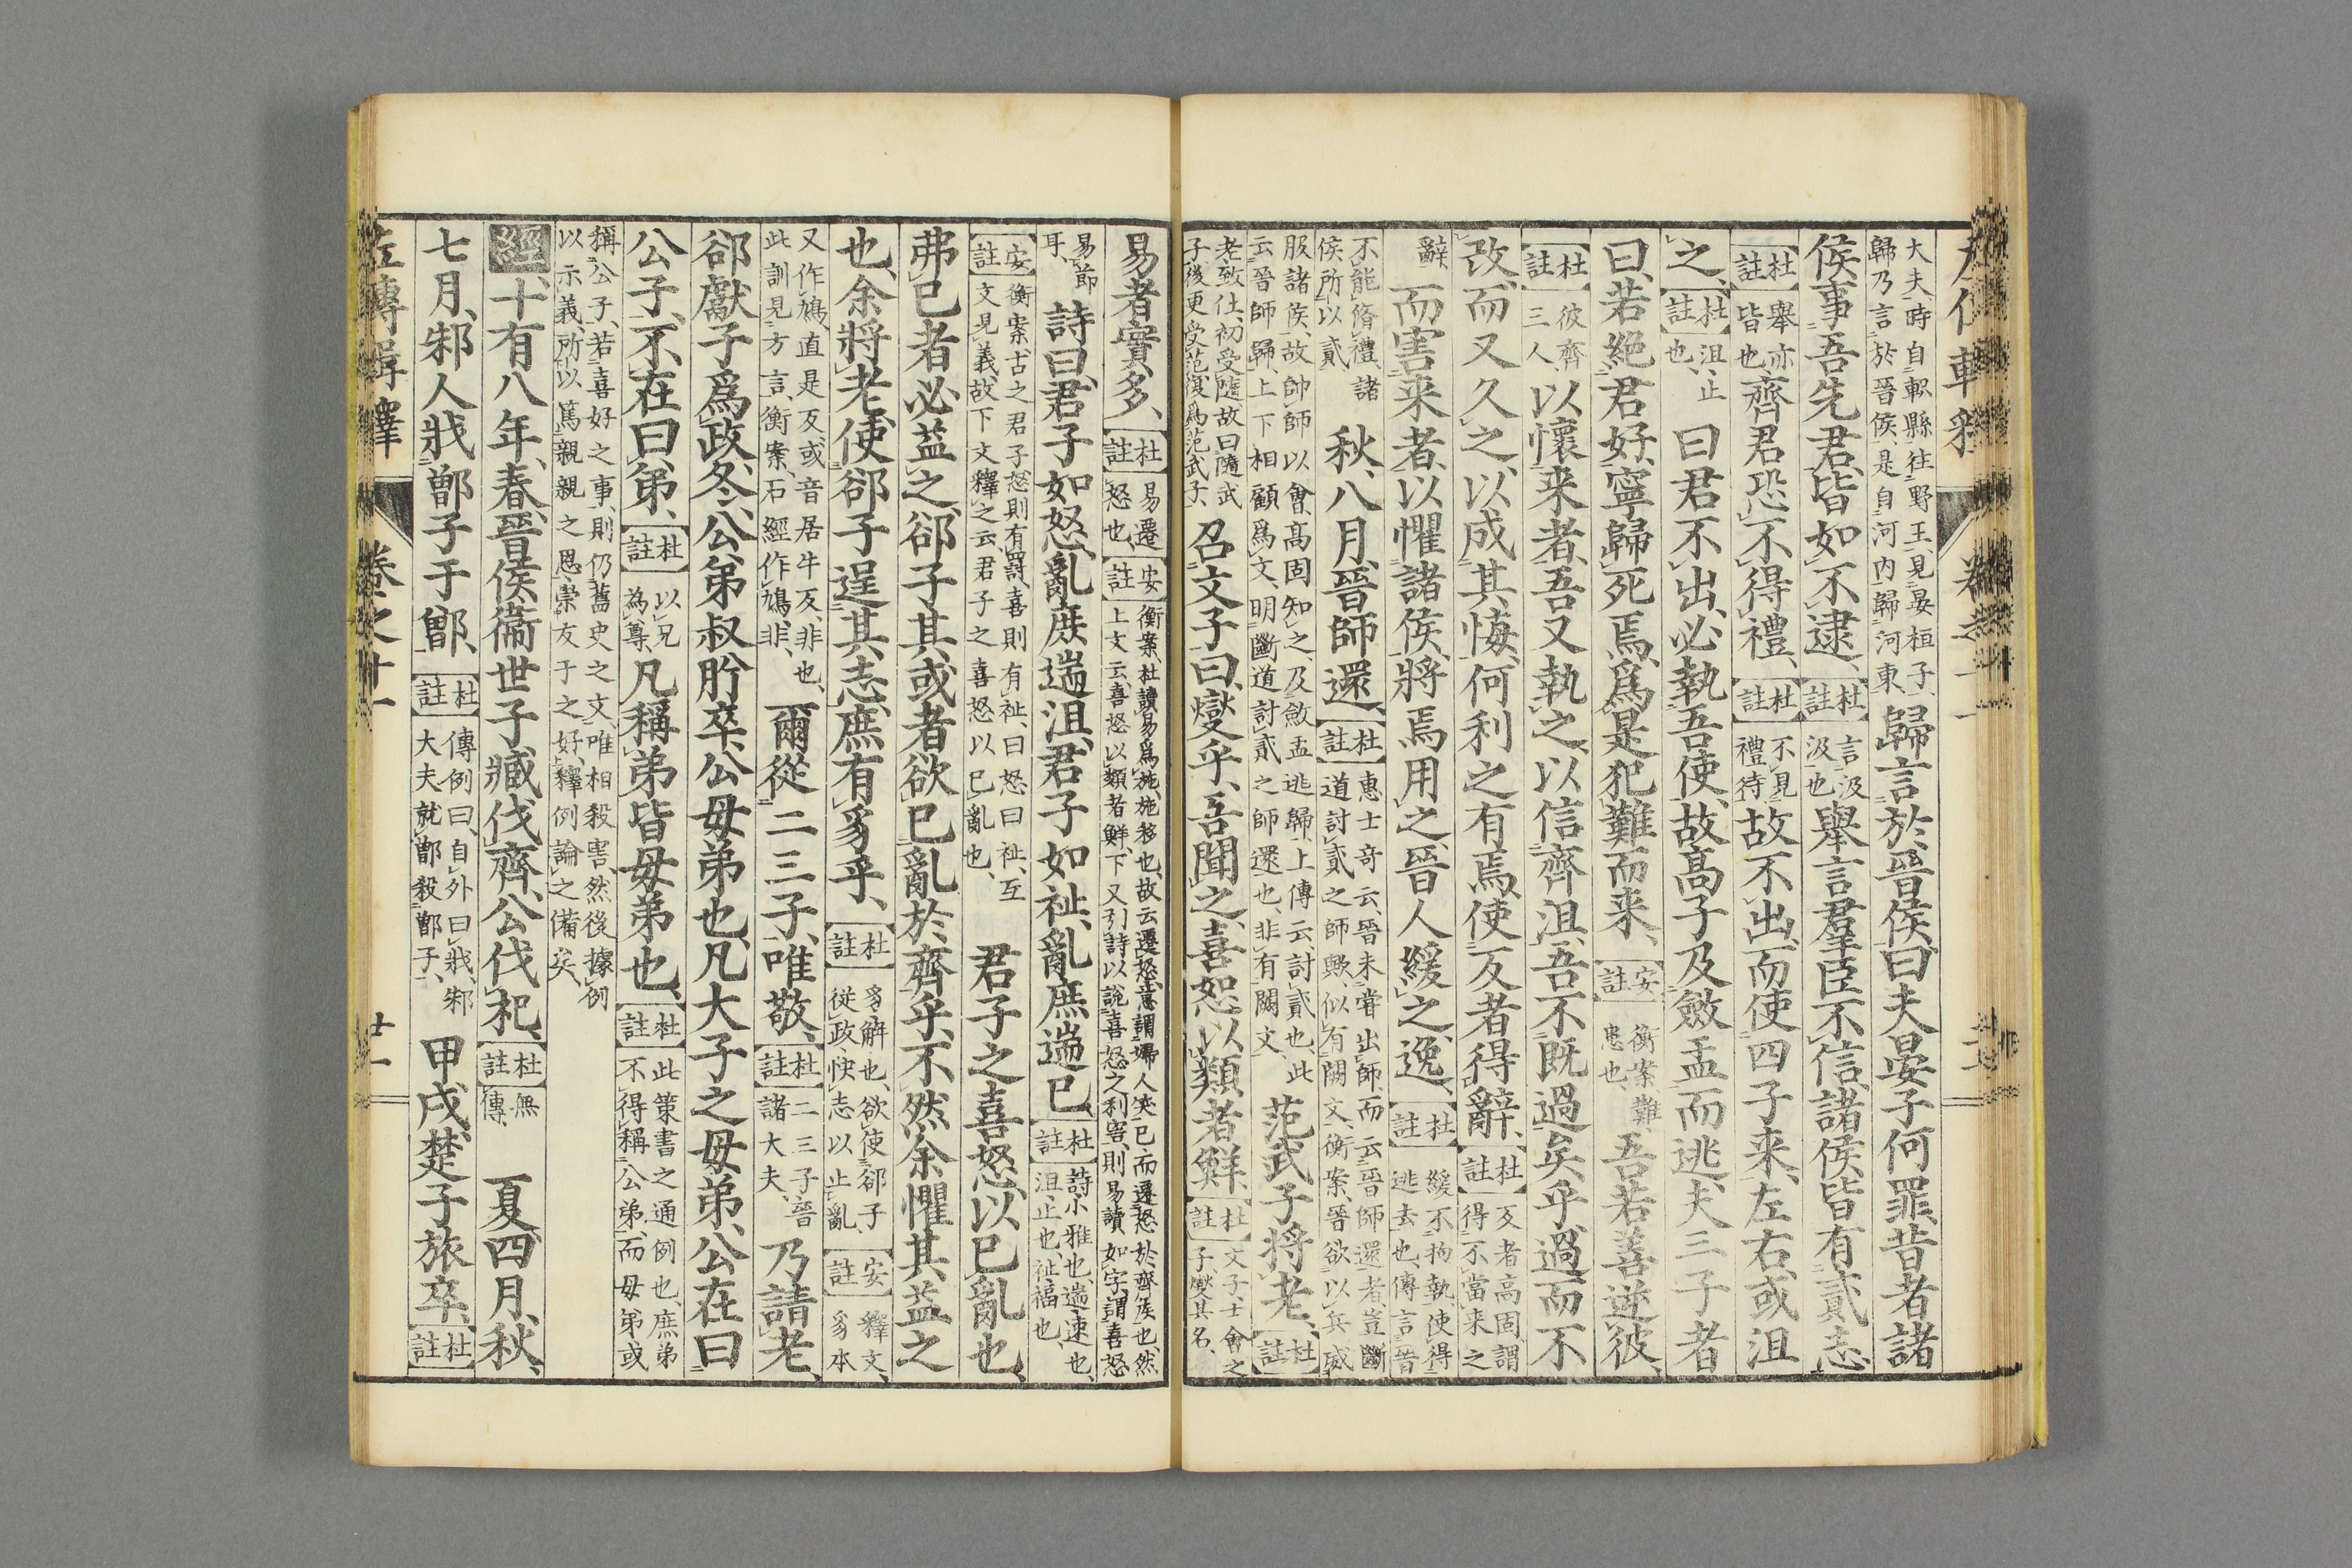 大夫、時自軹縣往野王、見晏桓子、
歸乃言於晉侯、是自河内歸河東、
歸言於晉侯曰、夫晏子何罪、昔者諸
侯事吾先君、皆如不逮、【杜註】言汲汲也舉言羣臣不信、諸侯皆有貳志、
【杜註】舉亦皆也、齊君恐不得禮、【杜註】不見禮待故不出、而使四子来、左右或沮
之、【杜註】沮、止也、曰君不出、必執吾使、故髙子及斂盂而逃、夫三子者
曰、若絕君好、寧歸死焉、爲是犯難而来、【安註】衡案、難、患也、吾若善逆彼、
【杜註】彼齊三人、以懷来者、吾又執之、以信齊沮、吾不既過矣乎、過而不
改、而又久之、以成其悔、何利之有焉、使反者得辭、【杜註】反者高固謂得不當来之
辭、而害来者、以懼諸侯、將焉用之、晉人緩之、逸、【杜註】緩不拘執、使得逃去也、傳言晉
不能脩禮、諸侯所以貳秋、八月、晉師還、【杜註】惠士奇云、晉未甞出師、而云晉師還者、豈斷道討貳之師歟、似有闕文、衡案、晉欲以兵威
服諸侯、故帥師以會、髙固知之、及斂盂逃歸、上傳云、討貳也、此云晉師歸、上下相顧爲文、明斷道討貳之師還也、非有闕文、范武子將老、【杜註】
老致仕、初受隨、故曰隨武子、後更受范、復爲范武子、召文子曰、燮乎、吾聞之、喜怒以類者鮮、【杜註】文子、士會之子、燮其名、
易者實多、【杜註】易遷怒也、【安註】衡案、杜讀易爲施、施、移也、故云遷怒、意謂婦人笑已、而遷怒於齊矦也、然上文云、喜怒以類者鮮、下又引詩以說喜怒之利害、則易讀如字、謂喜怒
易節耳、詩曰、君子如怒、亂庶遄沮、君子如祉、亂庶遄已、【杜註】詩小雅也、遄、速也、沮、止也、祉、福也、
【安註】衡案、古之君子、怒則有罰、喜則有祉、曰怒曰祉、互文見義、故下文釋之云、君子之喜怒、以已亂也、君子之喜怒、以已亂也、
弗已者必益之、郤子其或者欲已亂於齊乎、不然、余懼其益之
也、余將老、使郤子逞其志、庶有豸乎、【杜註】豸、解也、欲使郤子從政、快志以止亂、【安註】釋文、豸本
又作鳩、直是反、或音居牛反、非也、此訓見方言、衡案、石經作鳩、非、爾從二三子、唯敬、【杜註】二三子、晉諸大夫、乃請老、
郤獻子爲政、冬、公弟叔肸卒、公母弟也、凡大子之母弟、公在曰
公子、不在曰弟、【杜註】以兄為尊、凡稱弟、皆母弟也、【杜註】此策書之通例也、庶弟不得稱公弟、而母弟或
稱公子、若喜好之事、則仍舊史之文、唯相殺害、然後據例
以示義、所以篤親親之恩、崇友于之好、釋例論之備矣、
經十有八年、春、晉侯衞世子臧伐齊、公伐杞、【杜註】無傳、夏、四月、秋、
七月、邾人戕鄫子于鄫、【杜註】傳例曰、自外曰戕、邾大夫、就鄫殺鄫子、甲戌、楚子旅卒、【杜註】
左傳輯釋 卷之十一 廿一